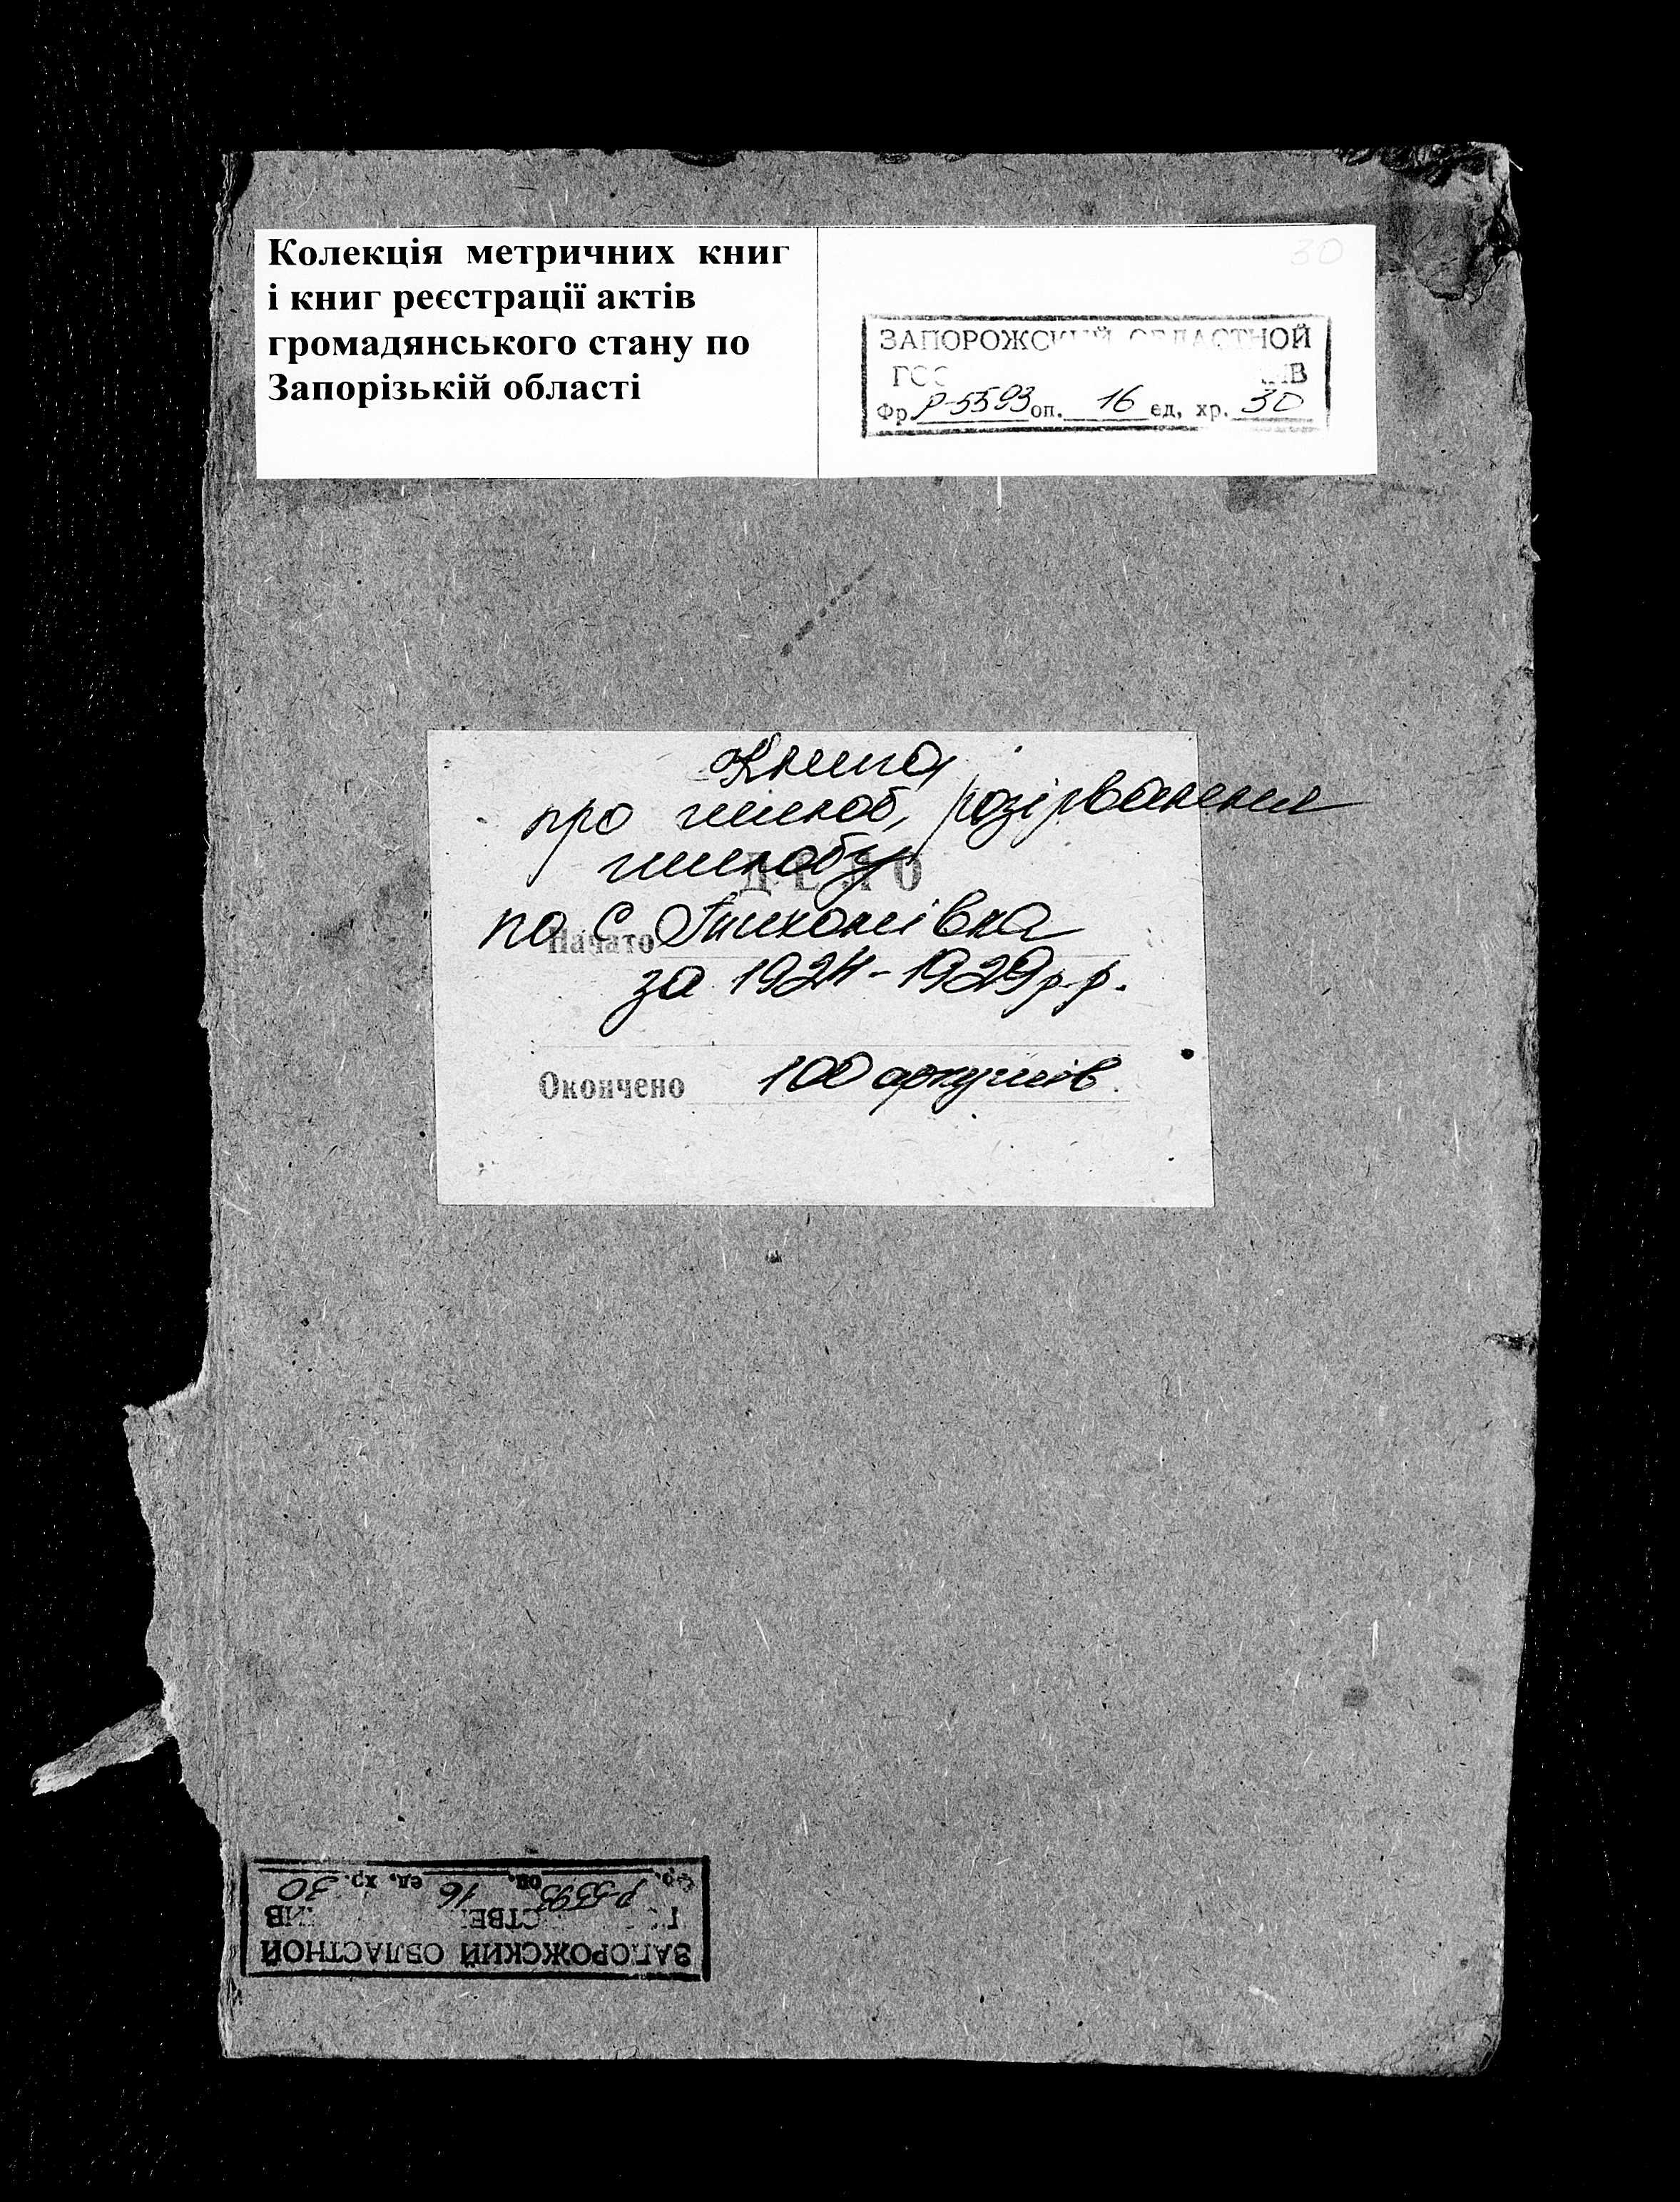 Колекція метричних книг
і книг реєстрації актів
громадянського стану по
Запорізькій області
30
ЗАПОРОЖСКИЙ ОБЛАСТНОЙ
ГОС ИВ
Фр. Р-5593 оп. 16 ед, хр. 30
Книга
про шлюб, розірвання
шлюбу
ДЕЛО
по с.
Начато
за 1924-1929 р.р.
Окончено 100 аркушів
Фр. Р-5593 оп. 16 ед, хр. 30
Г СТВЕ ИВ
ЗАПОРОЖСКИЙ ОБЛАСТНОЙ